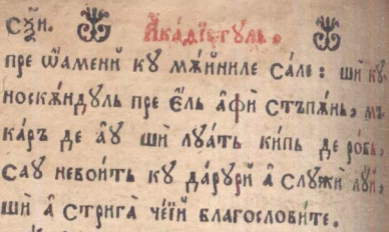 сꙋ҃й. А҆ка́ѳїстꙋль.
пре ѡ҆́амений кꙋ мѫ́йниле са́ле: ший кꙋ
носкѫ́ндꙋль пре є҆́ль а҆фѝ стъпѫ́нь, мъ
ка́ръ де а҆́ꙋ шѝ лꙋа́ть ки́пь де ро́бь,
саꙋ невои́ть кꙋ да́рꙋрй а҆̀ слꙋжѝ лꙋ́й,
шѝ а҆̀ стрига̀ че́їй благослови́те.